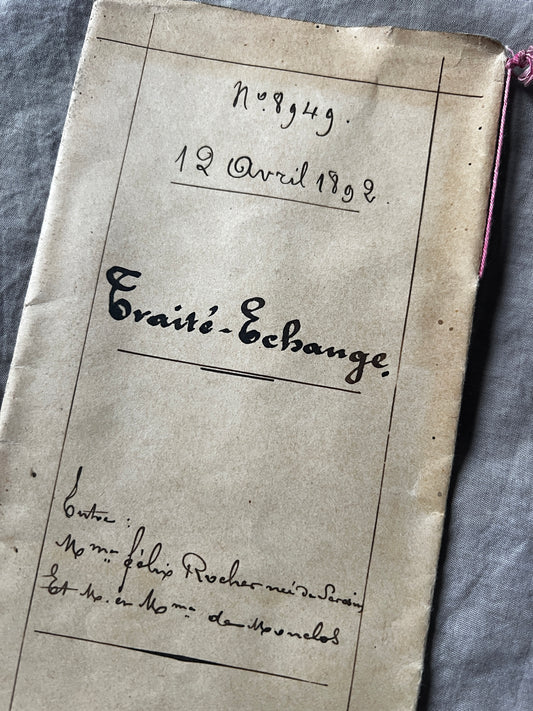 Nº. 8949.
12 Avril 1892.
Traité-Echange.
Entre :
Mme Félix Rocher née de
Et M. et Mme de Monclos